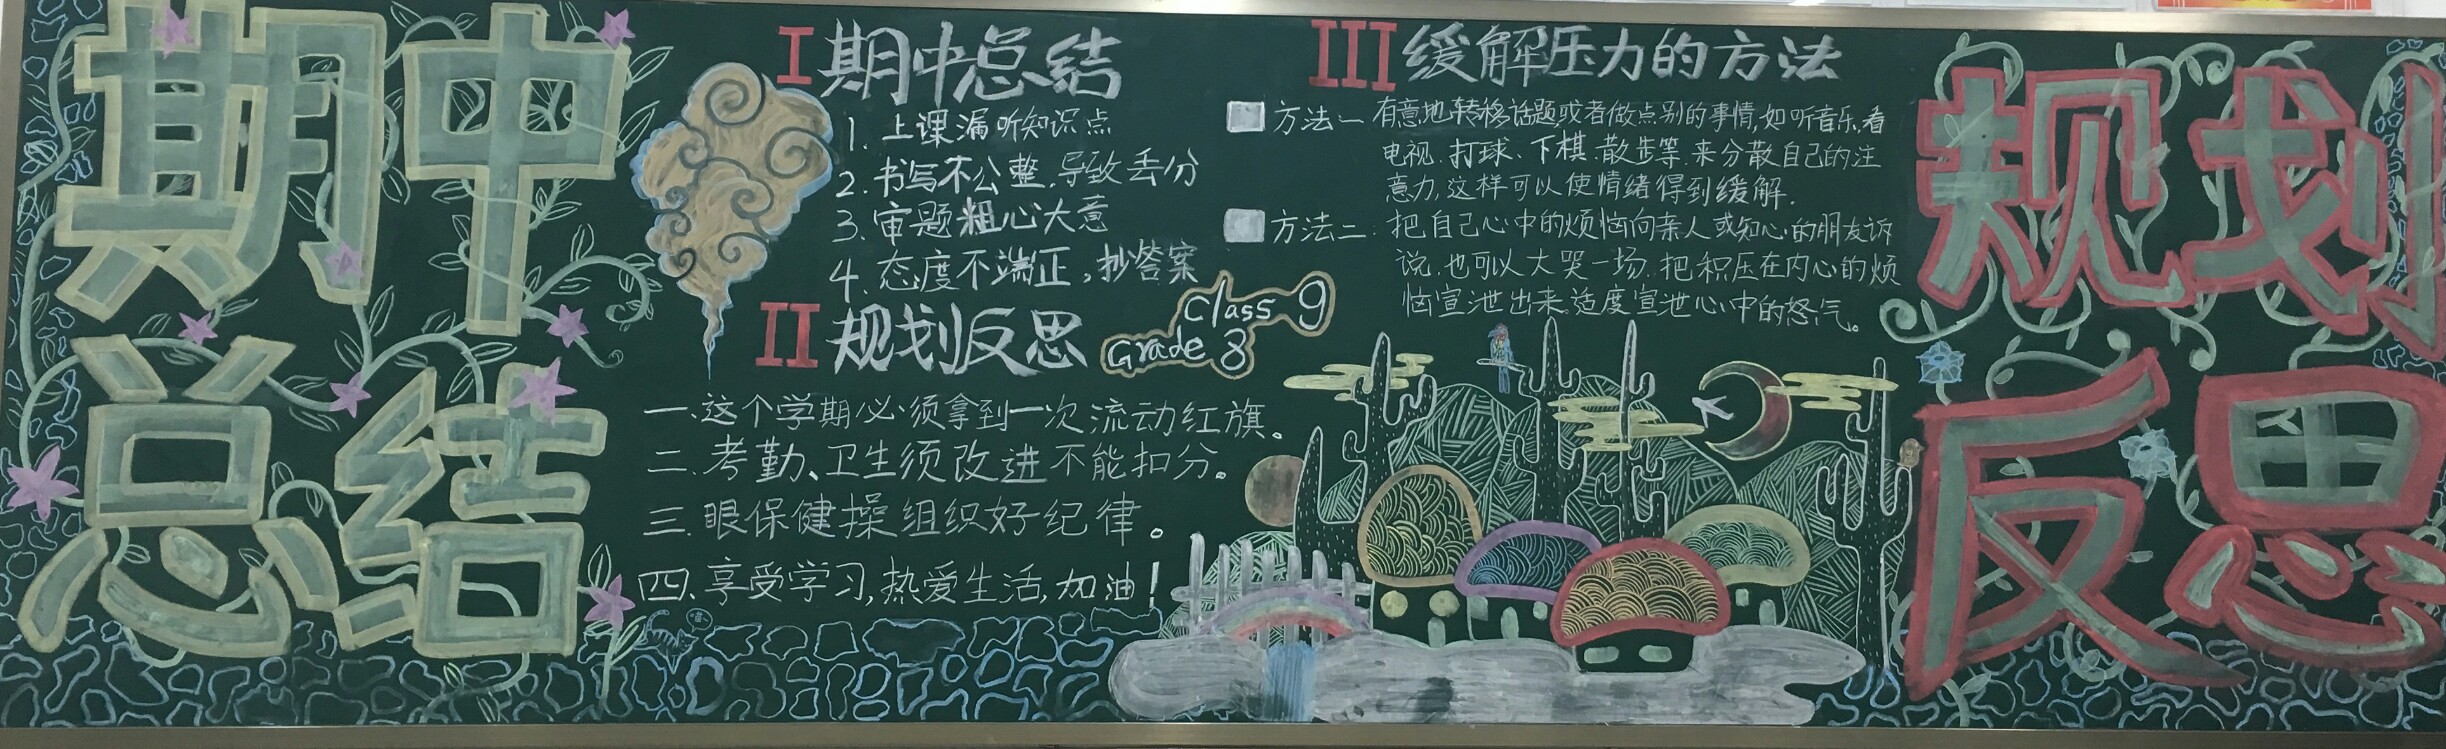 期中
总结
I 期中总结
1. 上课漏听知识点
2. 书写不公整.导致丢分
3. 审题粗心大意
4. 态度不端正,抄答案
II 规划反思
Class 9
Grade 8
一.这个学期必须拿到一次流动红旗。
二.考勤、卫生须改进不能扣分。
三.眼保健操组织好纪律。
四.享受学习,热爱生活,加油!
III 缓解压力的方法
方法一 有意地转移话题或者做点别的事情,如听音乐.看
电视.打球、下棋.散步等.来分散自己的注
意力,这样可以使情绪得到缓解.
方法二. 把自己心中的烦恼向亲人或知心的朋友诉
说.也可以大哭一场.把积压在内心的烦
恼宣泄出来.适度宣泄心中的怒气。
规划
反思